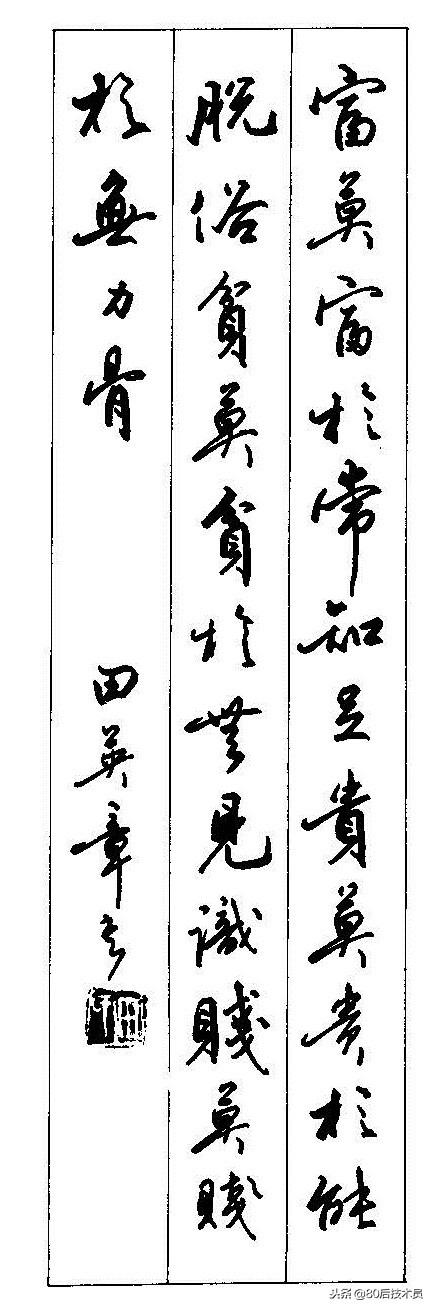 富莫富於常知足貴莫貴於能
脫俗貧莫貧於無見識賤莫賤
於無力骨
田英章書
头条@80后技术员